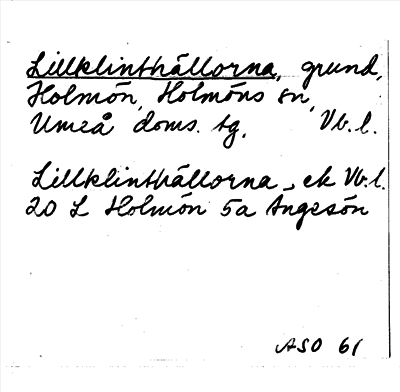 Lillklinthällorna, grund,
Holmön, Holmöns sn,
Umeå doms. tg, Vb. l.
Lillklinthällorna, ek Vb. l.
20 L Holmön 5a Ängesön
ASO 61